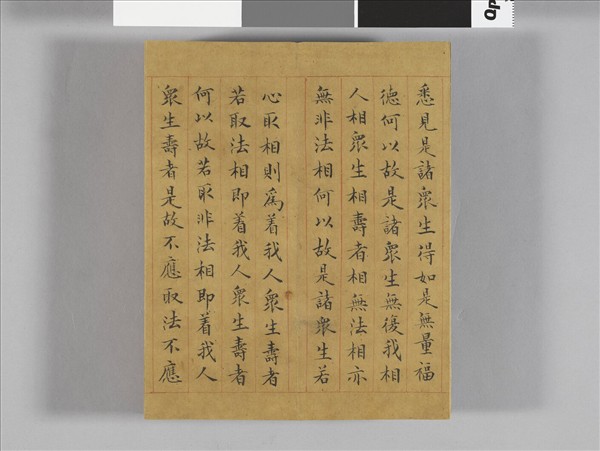 悉見是諸衆生得如是無量福
徳何以故是諸衆生無復我相
人相衆生相壽者相無法相亦
無非法相何以故是諸衆生若
心取相則爲着我人衆生壽者
若取法相即着我人衆生壽者
何以故若取非法相即着我人
衆生壽者是故不應取法不應
Qp